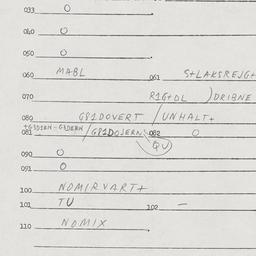 033 O
040 O
050 O
060 MABL 061 S+LAKSREJG+
070 R1G+DL )DRIBNE
080 G81DOVERT /UNHALT+
081 /G81DOJERN 082 O
QV
090 O
091 O
100 NOMIRVART+
101 TU 102 –
110 NOMIX